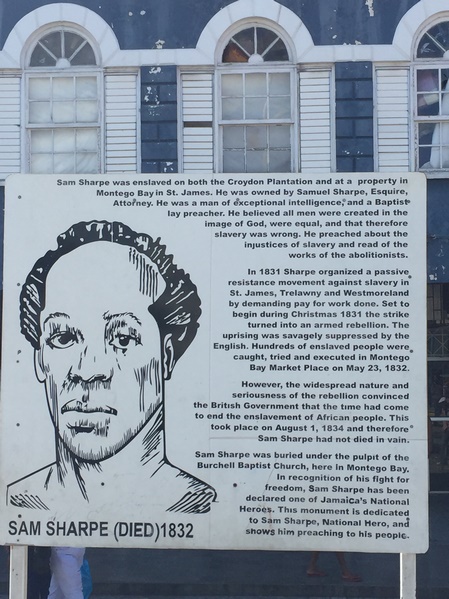 Sam Sharpe was enslaved on both the Croydon Plantation and at a property in
Montego Bay in St. James. He was owned by Samuel Sharpe, Esquire,
Attorney. He was a man of exceptional intelligence, and a Baptist
lay preacher. He believed all men were created in the
image of God, were equal, and that therefore
slavery was wrong. He preached about the
injustices of slavery and read of the
works of the abolitionists.
In 1831 Sharpe organized a passive
resistance movement against slavery in
St. James, Trelawny and Westmoreland
by demanding pay for work done. Set to
begin during Christmas 1831 the strike
turned into an armed rebellion. The
uprising was savagely suppressed by the
English. Hundreds of enslaved people were
caught, tried and executed in Montego
Bay Market Place on May 23, 1832.
However, the widespread nature and
seriousness of the rebellion convinced
the British Government that the time had come
to end the enslavement of African people. This
took place on August 1, 1834 and therefore
Sam Sharpe had not died in vain.
Sam Sharpe was buried under the pulpit of the
Burchell Baptist Church, here in Montego Bay.
In recognition of his fight for
freedom, Sam Sharpe has been
declared one of Jamaica's National
Heroes. This monument is dedicated
to Sam Sharpe, National Hero, and
shows him preaching to his people.
SAM SHARPE (DIED)1832